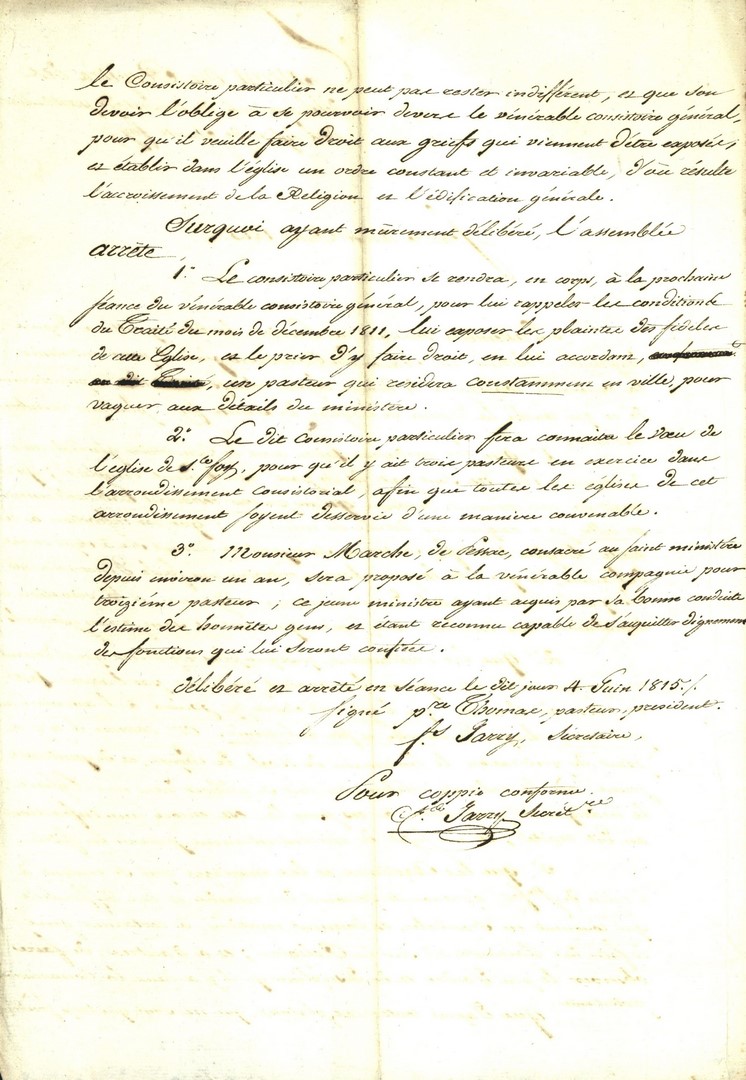 le Consistoire particulier ne peut pas rester indifférent, et que son
devoir l'oblige à se pourvoir devers le vénérable consistoire général,
pour qu'il veuille faire droit aux griefs qui viennent d'être exposés,
et établir dans l'église un ordre constant et invariable, d'où résulte
l'accroissement de la Religion et l'édification générale.
Surquoi ayant mûrement délibéré, l'assemblée
arrête
1.° Le consistoire particulier se rendra, en corps, à la prochaine
séance du vénérable consistoire général, pour lui rappeler les conditions
du Traité du mois de décembre 1811, lui exposer les plaintes des fideles
de cette Eglise, et le prier d'y faire droit, en lui accordant,
un pasteur qui residera constamment en ville, pour
vaquer aux détails du ministère.
2.° Le dit Consistoire particulier fera connaitre le voeu de
l'église de S.te foy, pour qu'il y ait trois pasteurs en exercice dans
l'arrondissement Consistorial, afin que toutes les églises de cet
arrondissement soyent desservies d'une manière convenable.
3.° Monsieur Marche, de Pessac, consacré au saint ministère
depuis environ un an, sera proposé à la vénérable compagnie pour
troizième pasteur ; ce jeune ministre ayant acquis par sa bonne conduite
l'estime des honnêtes gens, et étant reconnu capable de s'aquitter dignement
des fonctions qui lui seront confiées.
délibéré et arrêté en séance le dit jour 4 Juin 1815./.
signé p.re Thomas, pasteur, president.
f.s Jarry, Secretaire,
Pour coppie conforme.
Jarry Secrét.re